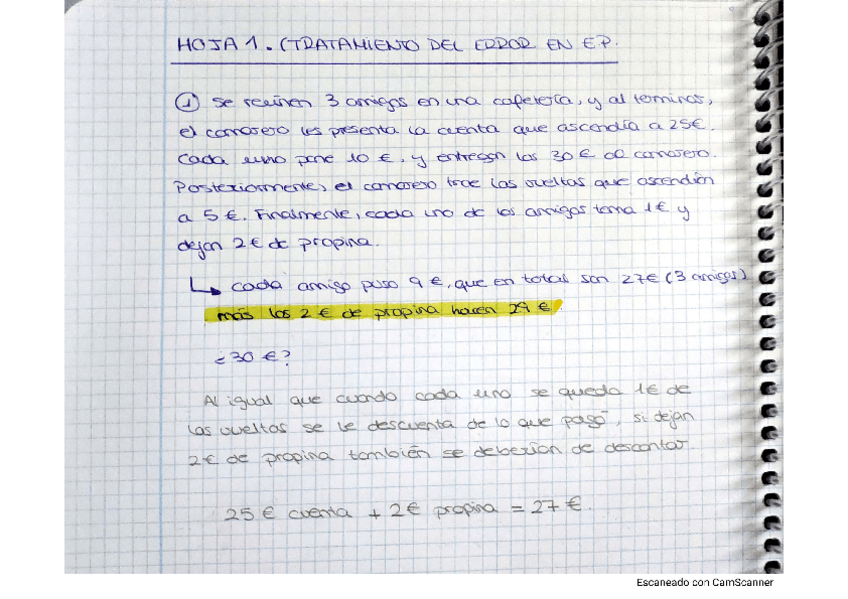 HOJA 1. (TRATAMIENTO DEL ERROR EN E.P.
① Se reúnen 3 amigos en una cafetería, y al terminar,
el camarero les presenta la cuenta que ascendía a 25€.
Cada uno pone 10 €, y entregan los 30 € al camarero.
Posteriormente, el camarero trae las vueltas que ascendían
a 5 €. Finalmente, cada uno de los amigos toma 1€ y
dejan 2€ de propina.
↳ cada amigo puso 9 €, que en total son 27€ (3 amigos)
más los 2 € de propina hacen 29 €
¿30 €?
Al igual que cuando cada uno se queda 1€ de
las vueltas se le descuenta de lo que pagó, si dejan
2€ de propina también se deberían de descontar.
25 € cuenta + 2€ propina = 27 €.
Escaneado con CamScanner